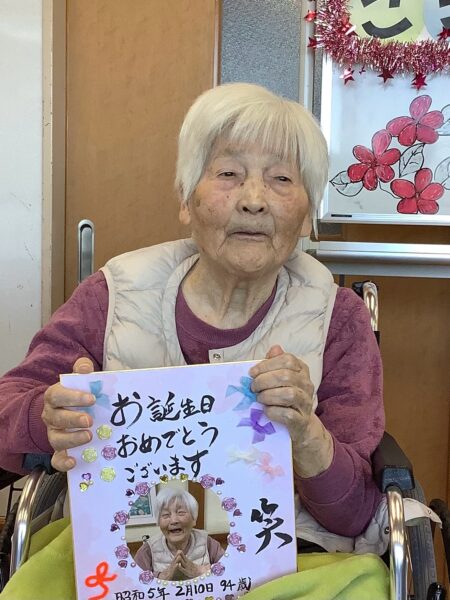 お誕生日
おめでとう
ございます
笑
昭和5年 2月10日 94才